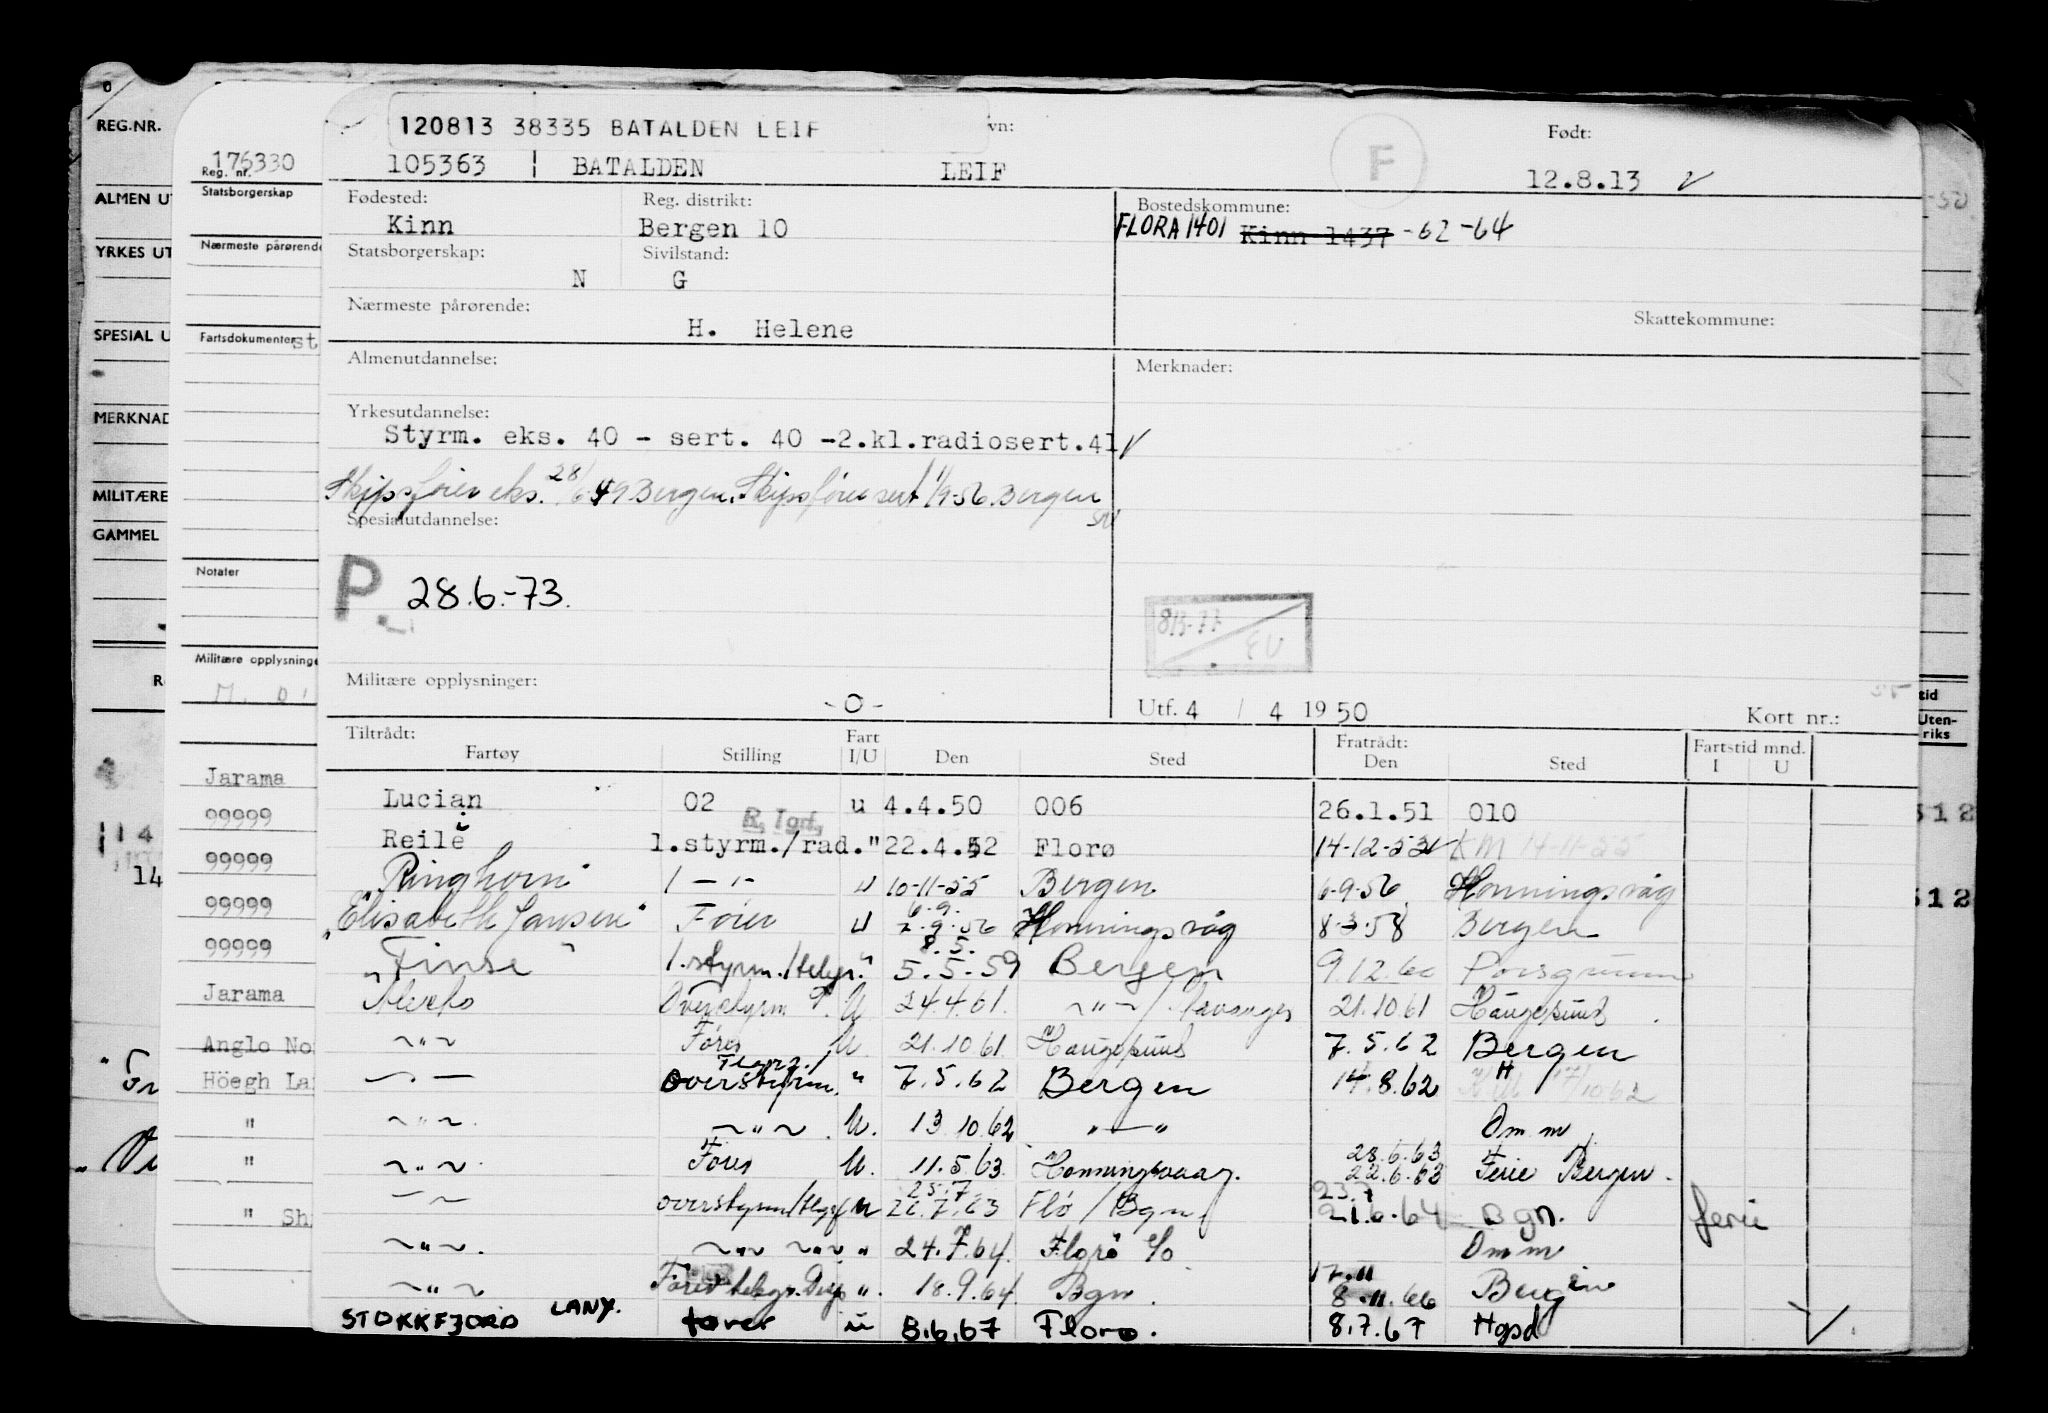 REG.NR.
176330
Reg. nr.
ALMEN UT
Statsborgerskap
YRKES UT
Nærmeste pårørende
SPESIAL U
Fartsdokumenter st
MERKNAD
MILITÆRE
GAMMEL
Notater
Militære opplysninge
Jarama
99999
14
99999
14
99999
99999
Jarama
Anglo No
Höegh La
"
"
" Sh
120813 38335 BATALDEN LEIF
vn:
F
Født:
105363 BATALDEN LEIF
12.8.13
Fødested: Kinn
Reg. distrikt: Bergen 10
Bostedskommune:
FLORA 1401 Kinn 1437 -62 -64
Statsborgerskap: N
Sivilstand: G
Nærmeste pårørende:
H. Helene
Skattekommune:
Almenutdannelse:
Merknader:
Yrkesutdannelse:
Styrm. eks. 40 - sert. 40 -2.kl.radiosert.41
Skipsfører eks. 28/6 49 Bergen. Skipsfører sert 1/9-56 Bergen
Spesialutdannelse:
P. 28.6.-73.
Militære opplysninger:
-O-
Utf. 4 / 4 1950
Kort nr.:
Tiltrådt: Fartøy Stilling Fart I/U Den Sted Fratrådt: Den Sted Fartstid mnd. I U
tid
Uten-
riks
Lucian 02 u 4.4.50 006 26.1.51 010
R. Tgrf.
Reile 1.styrm./rad. " 22.4.52 Florø 14-12-53 KM 14-11-55
Ringhorn 1 - " - u 10-11-55 Bergen 6-9-56 Honningsvåg
6.9.
"Elisabeth Jansen" Fører u 7.9.56 Honningsvåg 8-3-58 Bergen
8.5.
"Finse" 1.styrm./telgr. " 5.5.59 Bergen 9.12.60 Porsgrunn
Overstyrm U. 24.4.61. ~"~/Stavanger 21.10.61 Haugesund
~"~ Fører U. 21.10.61. Haugesund 7.5.62 Bergen
overstyrm. " 7.5.62 Bergen 14.8.62
~"~ ~"~ U. 13.10.62 "—" Om m
28.6.63
~"~ Fører U. 11.5.63 Honningsvaag. 22.6.63 Ferie Bergen.
25.7
23.7
overstyrm/telgr u 26.7.63 Flø / Bgn. 21.6.64 Bgn. ferie
~"~ ~"~ ~"~ " 24.7.64. Florö Om m
17.11
~"~ Fører telegr. Disp " 18.9.64 Bgn. 8.11.66 Bergen
STOKKFJORD LANY. fører u 8.6.67 Florø. 8.7.67 Hgsd